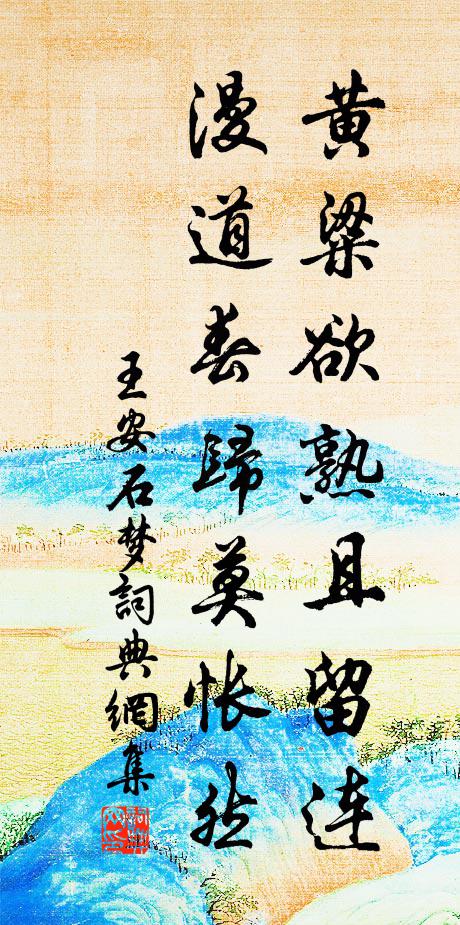 黄粱欲熟且留连
漫道春歸莫怅然
王安石梦詞典網集